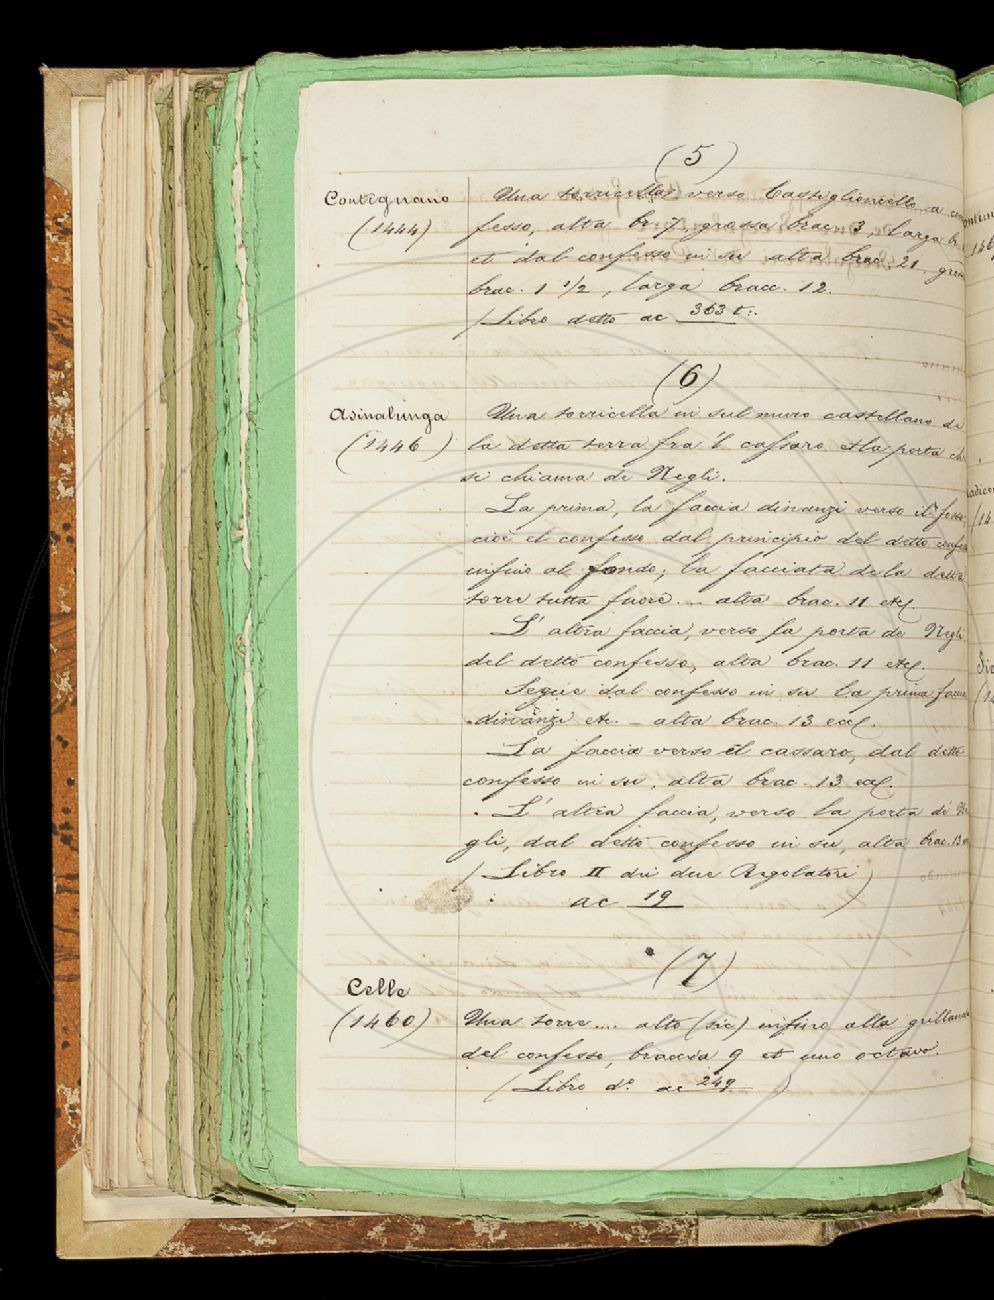 (5)
Contignano
(1444)
Una torricella verso Castiglioncello a con
fesso, alta br 7, grossa brac. 3, larga b.
et dal confesso in su alta brac. 21 grossa
brac. 1 1/2, larga bracc. 12.
(Libro detto ac 363 t:.
(6)
Asinalunga
(1446)
Una torricella in sul muro castellano de
la detta terra fra 'l cassaro et la porta che
si chiama de Negli.
La prima, la faccia dinanzi verso il fosso
cioè el confesso dal principio del detto confesso
infino al fondo; la facciata dela detta
torre tutta fuore ... alta brac. 11 etc.
L' altra faccia, verso la porta de Negli
del detto confesso, alta brac. 11 etc.
Segue dal confesso in su la prima faccia
dinanzi etc. - alta brac. 13 ecc.
La faccia verso el cassaro, dal detto
confesso in su, alta brac. 13 ecc.
L' altra faccia, verso la porta di Ne
gli, dal detto confesso in su, alta brac. 13
(Libro II dei due Regolatori)
ac 19
(7)
Celle
(1460)
Una torre .... alto (sic) infino alla grillanda
del confesso, braccia 9 et uno octavo.
(Libro d.º ac 249)